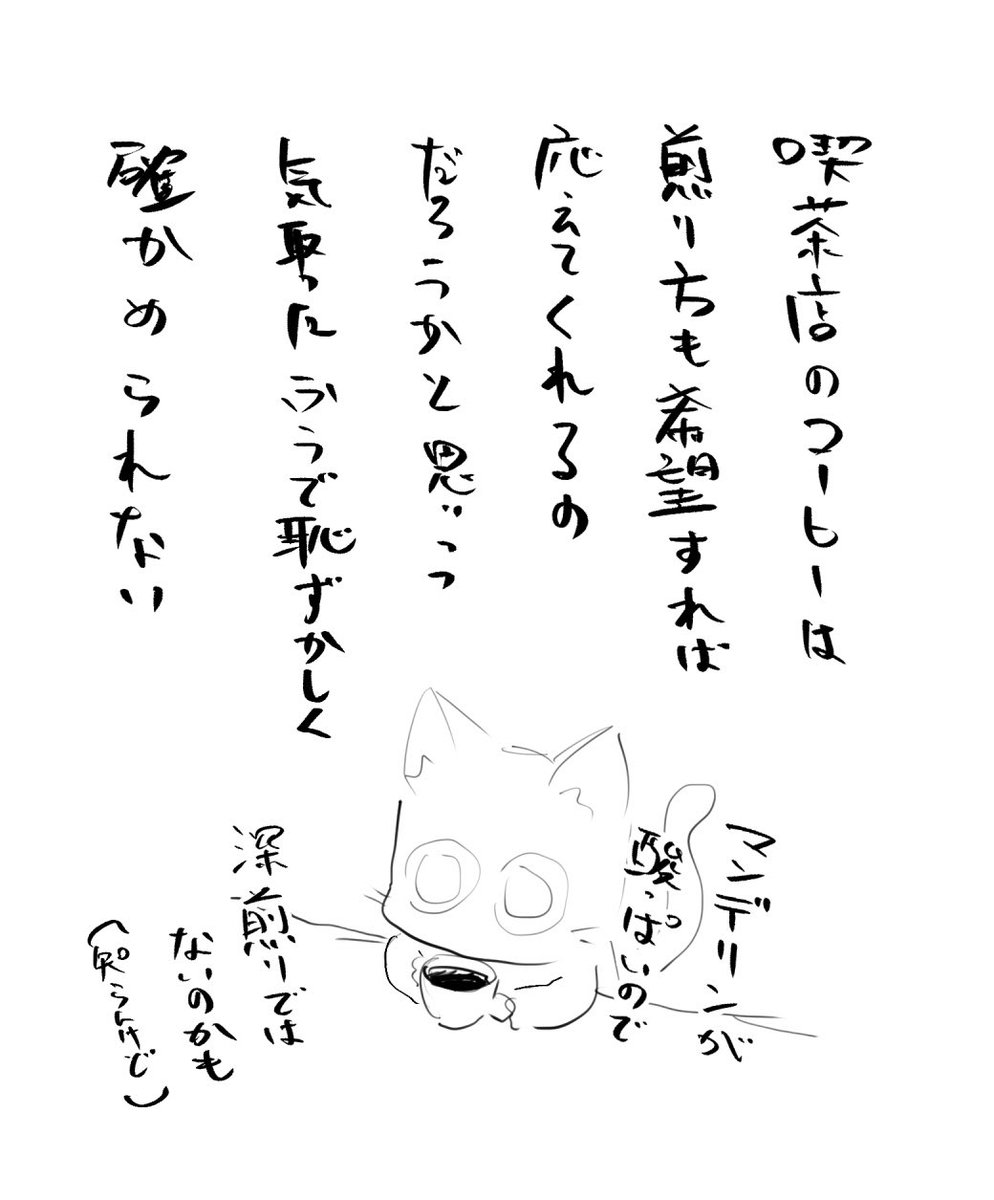 喫茶店のコーヒーは
煎り方も希望すれば
応えてくれるの
だろうかと思いつつ
気取ったふうで恥ずかしく
確かめられない
マンデリンが
酸っぱいので
深煎りでは
ないのかも
(知らんけど)